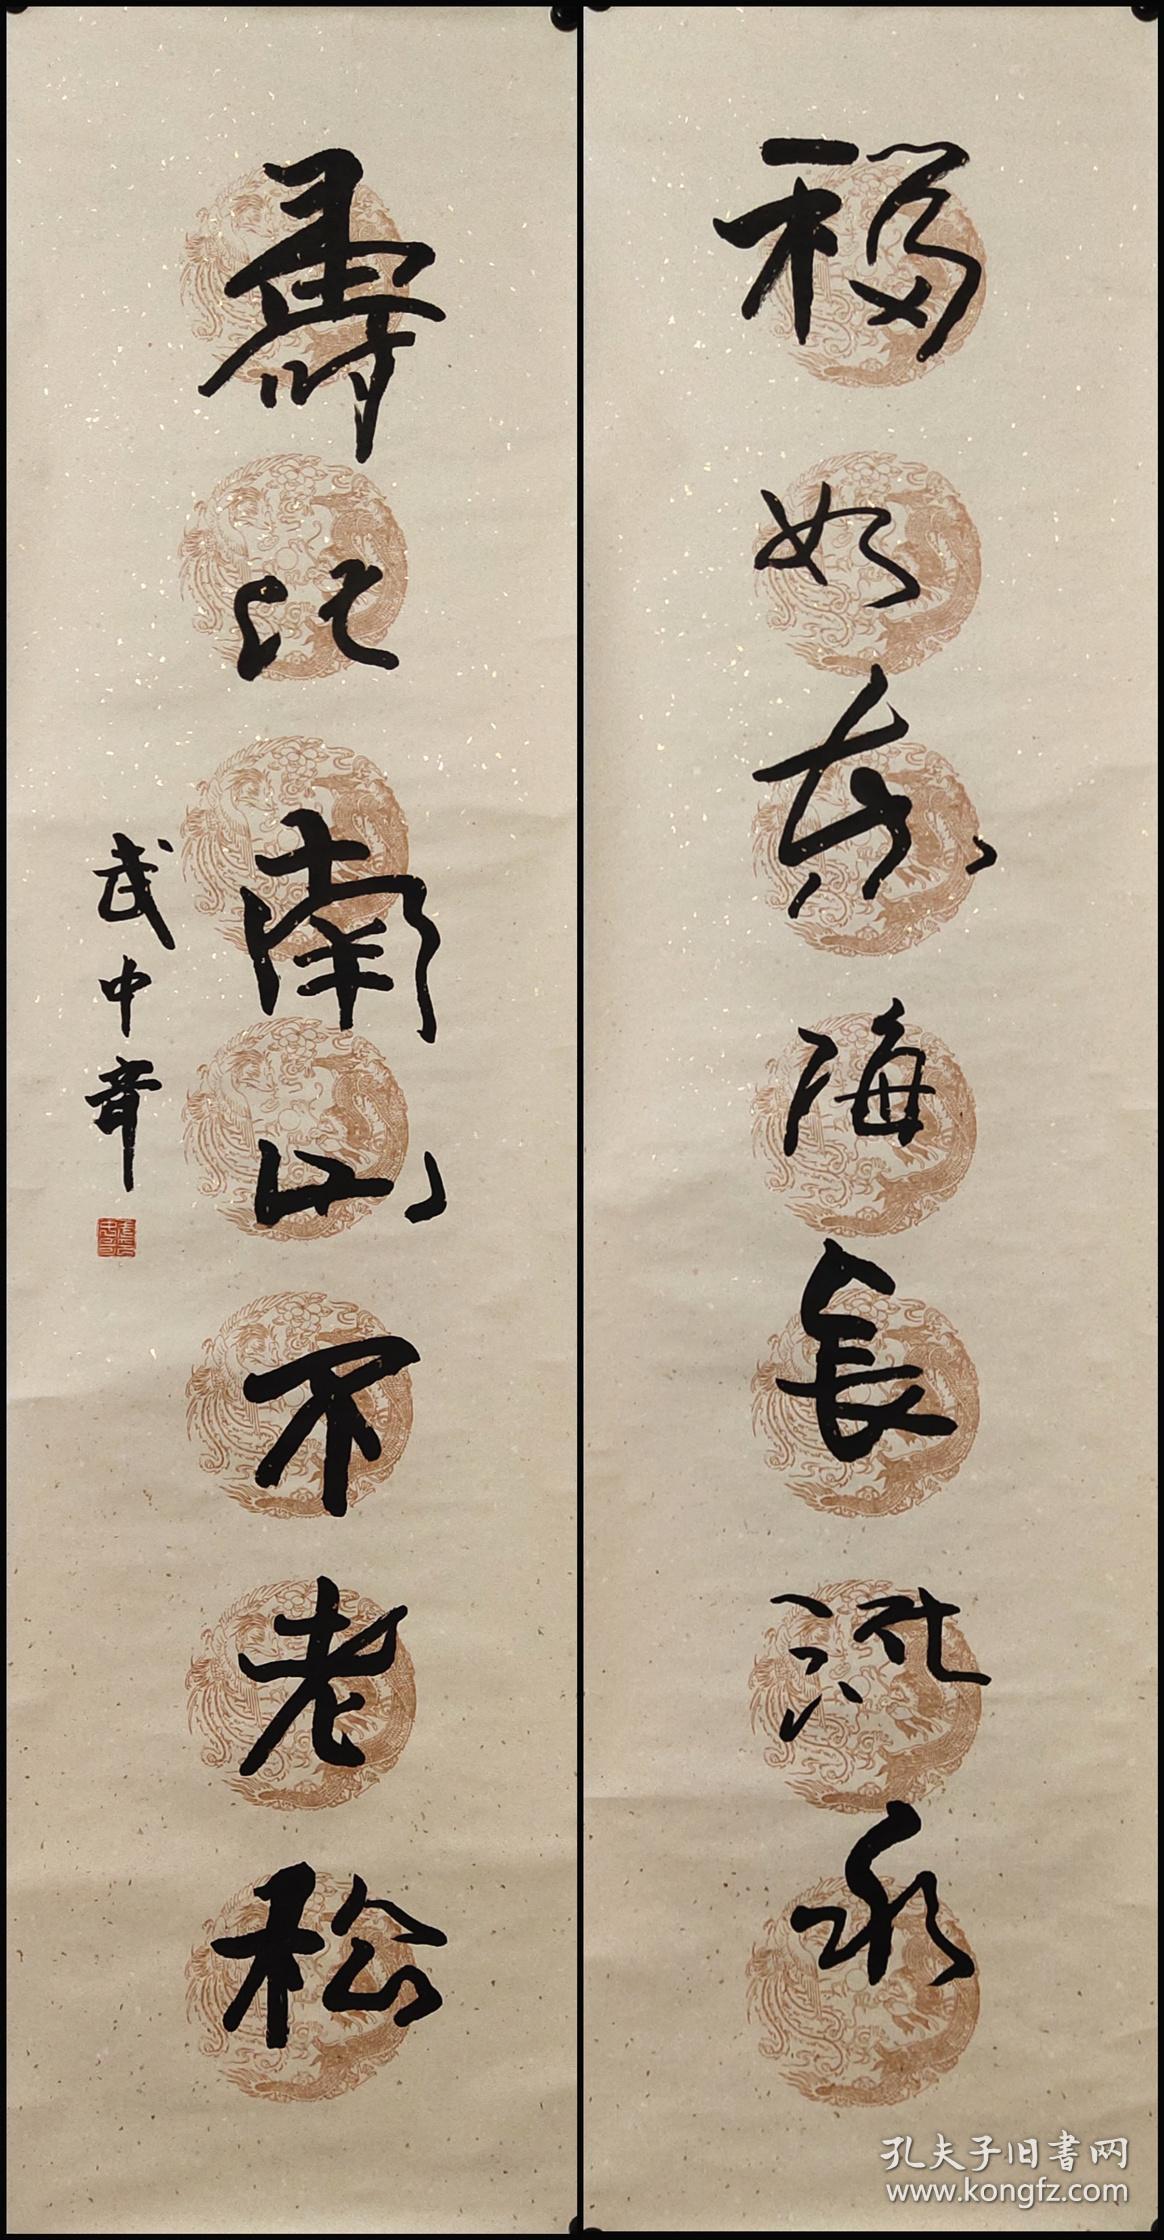 福如东海长流水
寿比南山不老松
武中奇
孔夫子旧書网
www.kongfz.com